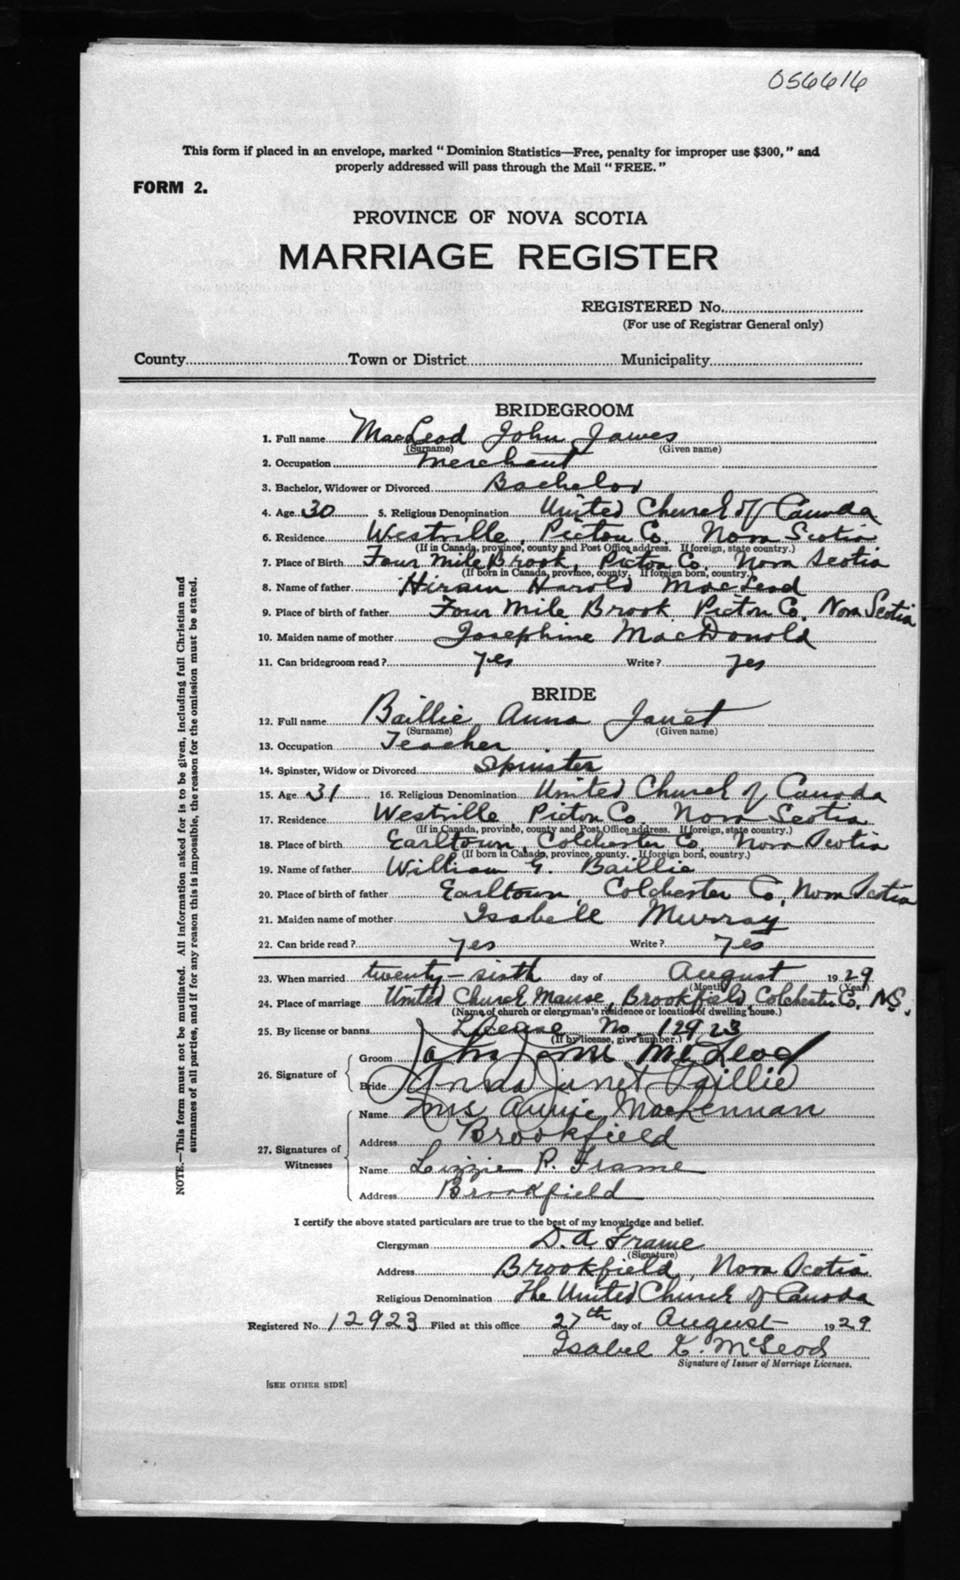 056616
This form if placed in an envelope, marked "Dominion Statistics—Free, penalty for improper use $300," and
properly addressed will pass through the Mail "FREE."
FORM 2.
PROVINCE OF NOVA SCOTIA
MARRIAGE REGISTER
REGISTERED No.
(For use of Registrar General only)
County Town or District Municipality
BRIDEGROOM
1. Full name MacLeod John James
(Surname) (Given name)
2. Occupation Merchant
3. Bachelor, Widower or Divorced Bachelor
4. Age 30 5. Religious Denomination United Church of Canada
6. Residence Westville, Pictou Co. Nova Scotia
(If in Canada, province, county and Post Office address. If foreign, state country.)
7. Place of Birth Four Mile Brook, Pictou Co. Nova Scotia
(If born in Canada, province, county. If foreign born, country.)
8. Name of father Hiram Harold MacLeod
9. Place of birth of father Four Mile Brook Pictou Co. Nova Scotia
10. Maiden name of mother Josephine MacDonald
11. Can bridegroom read? yes Write? yes
BRIDE
12. Full name Baillie Anna Janet
(Surname) (Given name)
13. Occupation Teacher
14. Spinster, Widow or Divorced Spinster
15. Age 31 16. Religious Denomination United Church of Canada
17. Residence Westville Pictou Co. Nova Scotia
(If in Canada, province, county and Post Office address. If foreign, state country.)
18. Place of birth Earltown, Colchester Co. Nova Scotia
(If born in Canada, province, county. If foreign born, country.)
19. Name of father William G. Baillie
20. Place of birth of father Earltown Colchester Co, Nova Scotia
21. Maiden name of mother Isabell Murray
22. Can bride read? yes Write? Yes
23. When married twenty-sixth day of August 1929
(Month) (Year)
24. Place of marriage United Church Manse, Brookfield, Colchester Co. N.S.
(Name of church or clergyman's residence or location of dwelling house.)
25. By license or banns License No. 12923
(If by license, give number.)
26. Signature of
Groom John James McLeod
Bride Anna Janet Baillie
27. Signatures of Witnesses
Name Mrs Annie MacLennan
Address Brookfield
Name Lizzie R. Frame
Address Brookfield
I certify the above stated particulars are true to the best of my knowledge and belief.
Clergyman D. A. Frame
(Signature)
Address Brookfield, Nova Scotia
Religious Denomination The United Church of Canada
Registered No. 12923 Filed at this office 27th day of August 1929
Isabel K. McLeod
Signature of Issuer of Marriage Licenses.
[SEE OTHER SIDE]
NOTE.—This form must not be mutilated. All information asked for is to be given, including full Christian and
surnames of all parties, and if for any reason this is impossible, the reason for the omission must be stated.